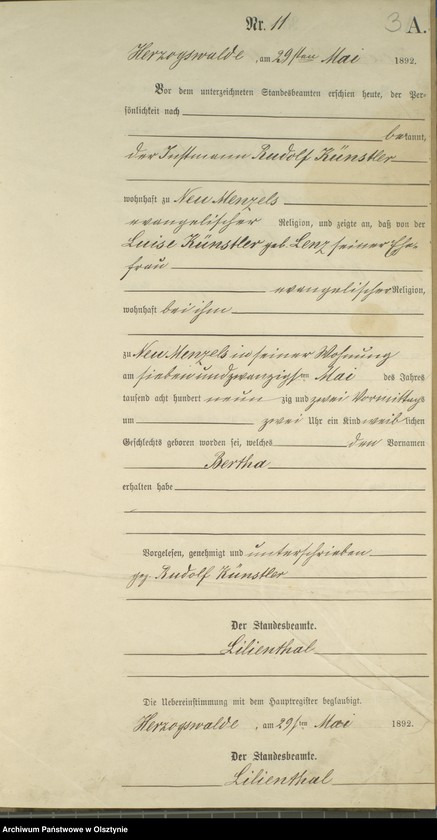 Nr. 11
3 A.
Herzogswalde, am 29sten Mai 1892.
Vor dem unterzeichneten Standesbeamten erschien heute, der Per-
sönlichkeit nach
bekannt,
der Instmann Rudolf Künstler
wohnhaft zu Neu Menzels
evangelischer Religion, und zeigte an, daß von der
Luise Künstler geb. Lenz seiner Ehe-
frau
evangelischer Religion,
wohnhaft bei ihm
zu Neu Menzels in seiner Wohnung
am sieben und zwanzigsten Mai des Jahres
tausend acht hundert neun zig und zwei Vormittags
um zwei Uhr ein Kind weib lichen
Geschlechts geboren worden sei, welches den Vornamen
Bertha
erhalten habe
Vorgelesen, genehmigt und unterschrieben
gez. Rudolf Künstler
Der Standesbeamte.
Lilienthal
Die Uebereinstimmung mit dem Hauptregister beglaubigt.
Herzogswalde, am 29sten Mai 1892.
Der Standesbeamte.
Lilienthal
Archiwum Państwowe w Olsztynie